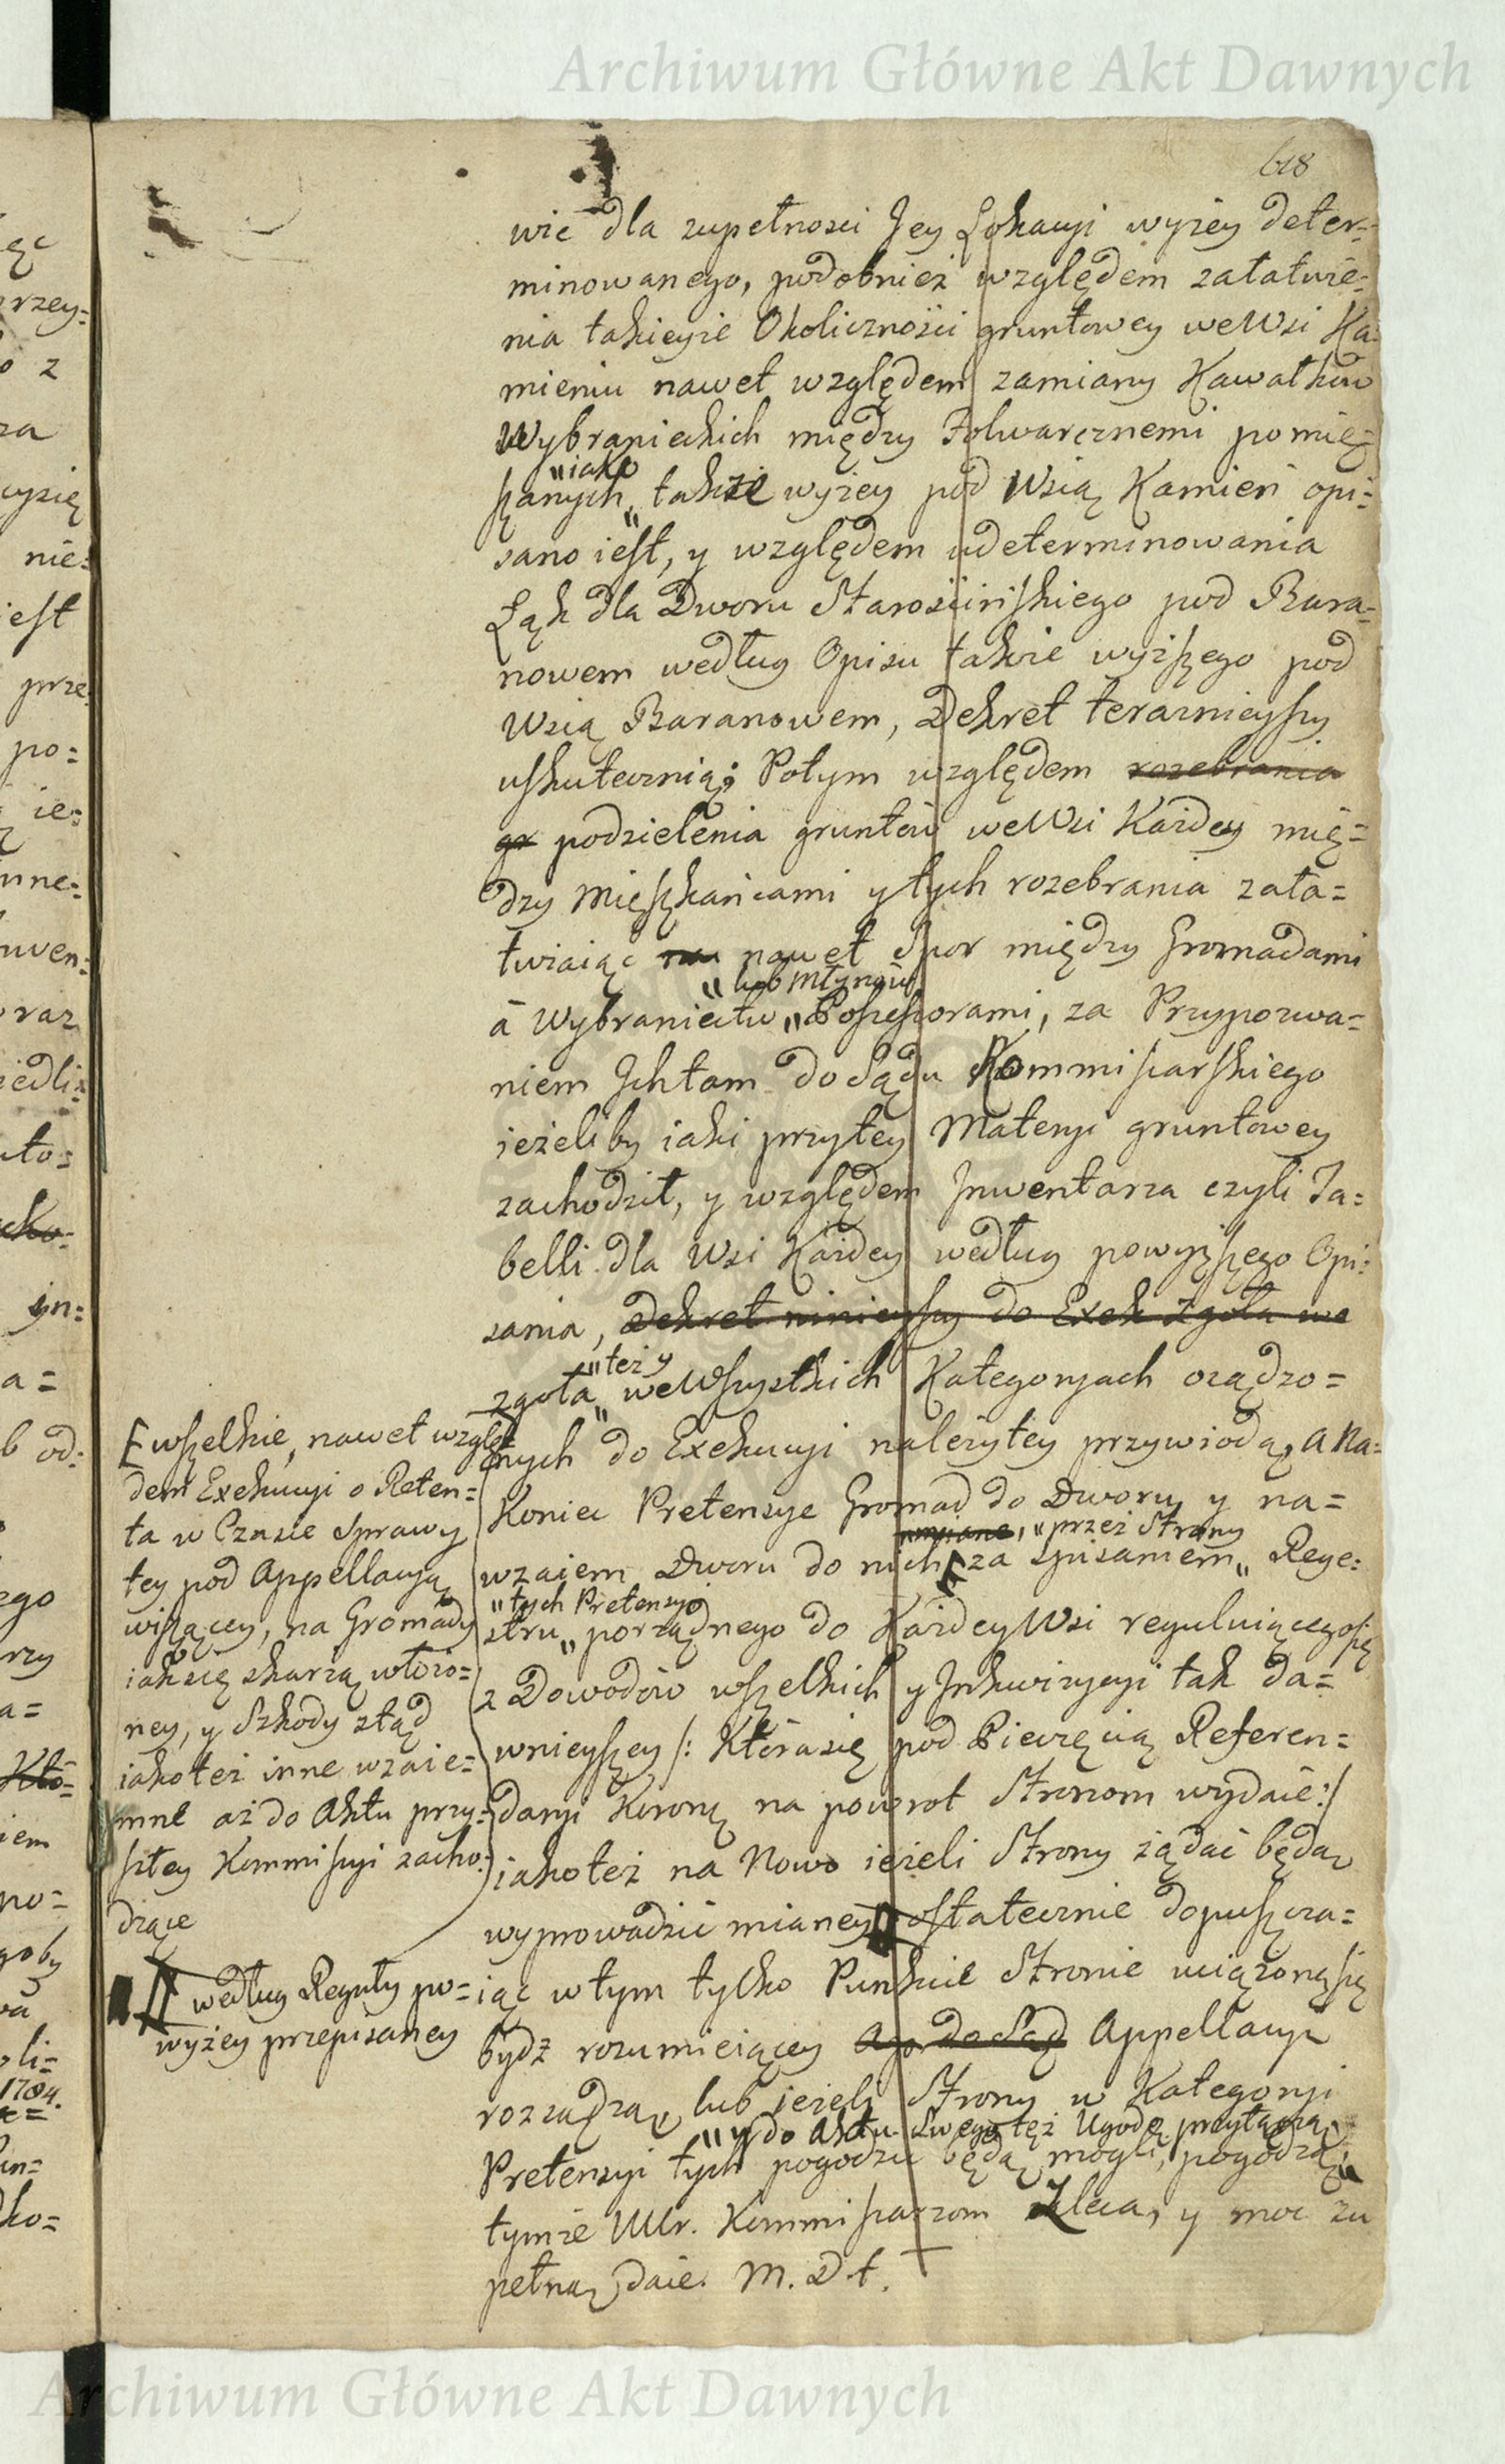 Archiwum Główne Akt Dawnych
618
wie dla zupełnosci Jey Lokacyi wyżey deter=
minowanego, podobnież względem załatwie=
nia takieyże Okolicznosci gruntowey weWsi Ka=
mieniu nawet względem zamiany Kawałków
Wybranieckich między Folwarcznemi pomię=
"iako
szanych" także wyżey pod Wsią Kamień opi=
sano iest, y względem udeterminowania
Łąk dla Dworu Starościńskiego pod Bara=
nowem według Opisu także wyższego pod
Wsią Baranowem, Dekret teraznieyszy
uskutecznią; Potym względem rozebrania
gr podzielenia gruntów weWsi Każdey mię=
dzy Mięszkańcami y tych rozebrania zała=
twiaiąc na nawet Spor między Gromadami
"lub Młynów
á Wybraniectw" Possessorami, za Przypozwa=
niem Ichtam do Sądu Kommissarskiego
ieżeliby iaki przytey Materyi gruntowey
zachodził, y względem Inwentarza czyli Ta=
belli dla Wsi Każdey według powyższego Opi=
sania, Dekret ninieyszy do Exek zgoła we
"też y
zgoła" weWszystkich Kategoryach osądzo=
nych do Exekucyi należytey przywiodą, a Na=
Koniec Pretensye Gromad do Dworu y na=
"przez Strony
wzaiem Dworu do nich za spisaniem" Reye=
"tych Pretensyi
stru" porządnego do KażdeyWsi reguluiącegosię
z Dowodów wszelkich y Inkwizycyi tak da=
wnieyszey /: Którasię pod Pieczęcią Referen=
daryi Koronę na powrot Stronom wydaie:/
iakoteż na Nowo ieżeli Strony żądać będą,
wyprowadzić mianey ostatecznie dopuszcza=
iąc wtym tylko Punkcie Stronie uciążonąsię
bydź rozumieiącey Ap do Sąd Appellacyi
rozsądzą, lub ieżeli Strony w Kategoryi
"y do Aktu Swego też Ugodę przyłączą,
Pretensyi tych pogodzić będą mogli, pogodzą"
tymże WWr. Kommissarzom Zleca, y moc zu
pełną daie. M. D. t.
[wszelkie, nawet wzglę
dem Exekucyi o Reten=
ta w Czasie Sprawy
tey pod Appellacyą
wiszącey, na Gromady
iak się skarzą włożo=
ney, y Szkody ztąd
iakoteż inne wzaie=
mne aż do Aktu przy=
szłey Kommissyi zacho=
dzące
według Reguły po=
wyżey przepisaney
Archiwum Główne Akt Dawnych